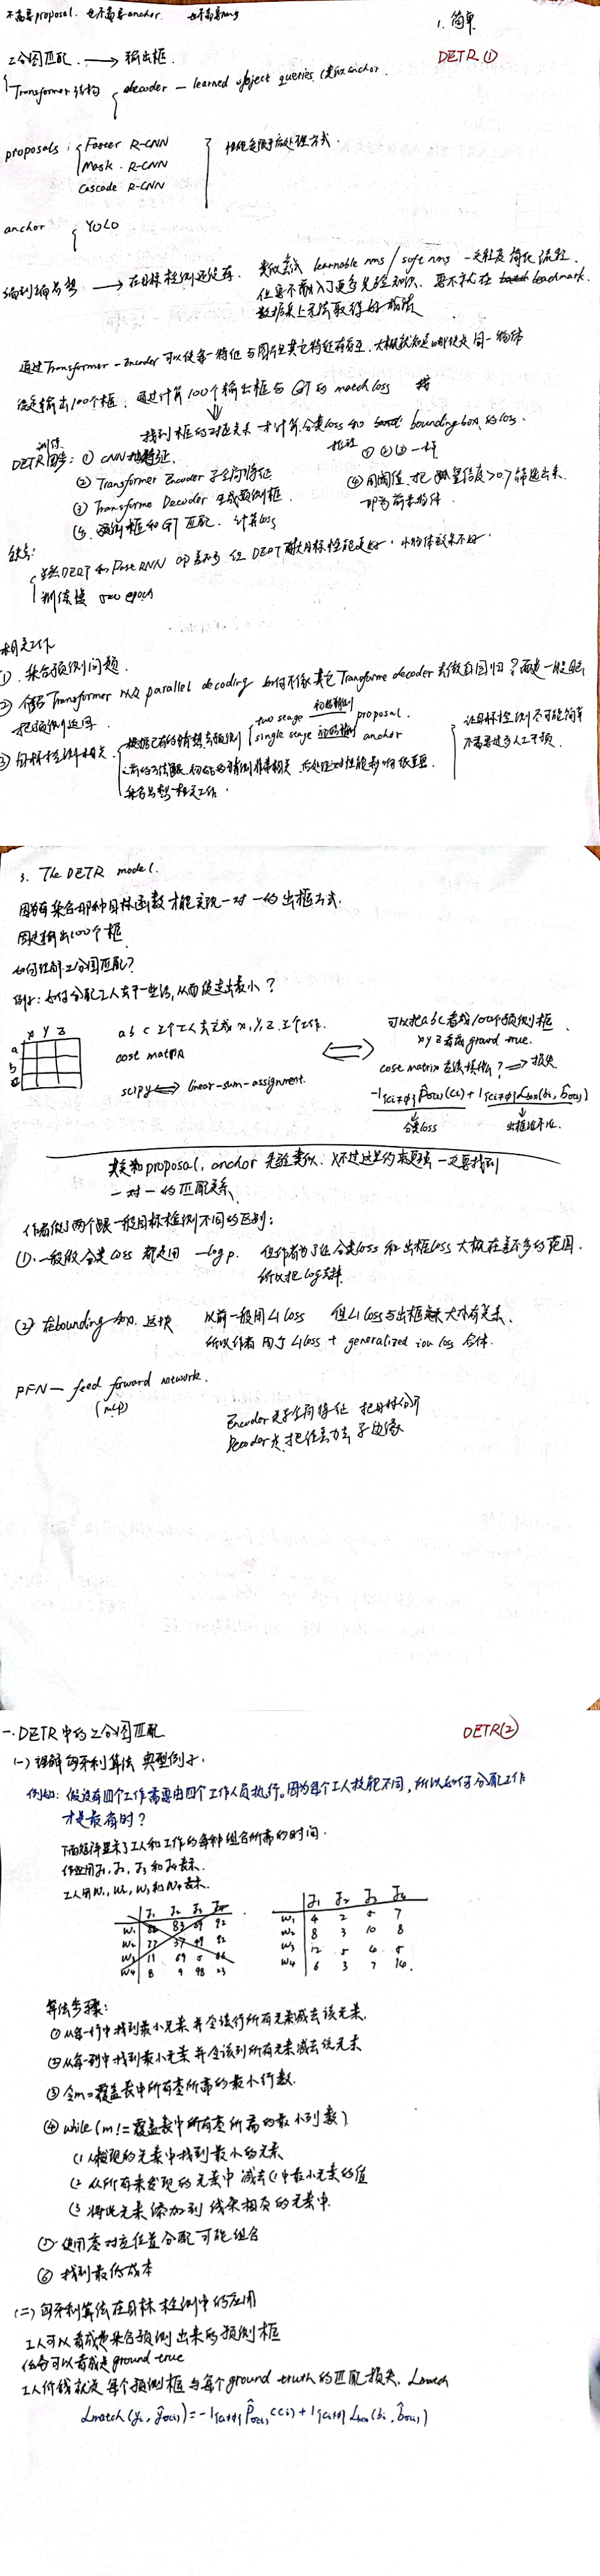 不需要proposal. 也不需要anchor. 也不需要nms
1. 简单
DETR①
二分图匹配. → 输出框.
Transformer结构 { decoder — learned object queries (类似anchor
proposals: Faster R-CNN
Mask R-CNN
Cascade R-CNN
性能受限于后处理方式.
anchor { YOLO
端到端思想 → 在目标检测还没有.
类似差线 learnable nms / soft nms 一定程度简化流程.
但要不融入了更多先验知识. 要不就在 benchmark
数据集上无法取得好成绩
通过Transformer-Encoder可以使每一特征与图中其它特征有交互. 大概就知道哪块是同一物体
最后输出100个框. 通过计算100个输出框与GT的match loss
找到框的对应关系 才计算分类loss和 bounding box的loss.
训练
推理
DETR图步: ① CNN抽特征.
①②③一样
② Transformer Encoder学全局特征
③ Transforme Decoder 生成预测框
④ 用阈值. 把置信度>0.7筛选出来.
即为前景物体.
④. 预测框和GT匹配. 计算loss
缺点:
虽然DERT和Fast RNN ap差不多 但DERT大目标性能更好. 小物体效果不好.
训练慢 500 epoch
相关工作
①. 集合预测问题.
② 介绍Transformer 以及parallel decoding 如何不像其它Transforme decoder 去做自回归? 而是一起
把预测返回
③ 目标检测相关.
根据已有的猜想去预测
two stage 初始猜测 proposal.
single stage 初始猜测 anchor
之前的方法跟初始的猜测非常相关. 后处理对性能影响很重要.
集合思想相关工作.
让目标检测尽可能简单
不需要过多人工干预.
3. The DETR model.
因为有集合那种目标函数才能实现一对一的出框方式.
固定输出100个框
如何理解二分图匹配?
例子: 如何分配工人去干一些活, 从而使支出最小?
x y z
a
b
c
a b c 三个工人去完成 x, y, z. 三个工作.
cost matrix
scipy ⟺ linear-sum-assignment.
可以把abc看成100个预测框
xyz看成ground true.
cost matrix应该填什么? ⟹ 损失
-1{ci≠ϕ} P̂σ(i)(ci) + 1{ci≠ϕ} Lbox(bi, b̂σ(i))
分类loss
出框准不准.
其实和proposal, anchor 先验类似. 只不过这里约束更强 一定要找到
一对一的匹配关系
作者做了两个跟一般目标检测不同的区别:
①. 一般做分类loss 都是用 -log p. 但作者为了让分类loss和出框loss大概在差不多的范围.
所以把log去掉
② 在bounding box. 这块 以前一般用L1 loss 但L1 loss与出框大小有关系.
所以作者用了L1 loss + generalized iou loss 合体.
FFN — feed forward network.
(mlp)
Encoder是学全局特征 把目标分开
Decoder是. 把任务力 学边缘
一. DETR中的二分图匹配
DETR②
(一) 理解匈牙利算法 典型例子.
例如: 假设有四个工作需要由四个工作人员执行。因为每个工人技能不同, 所以如何分配工作
才是最省时?
下面矩阵显示了工人和工作的每种组合所需的时间.
作业用J1, J2, J3和J4表示.
工人用W1, W2, W3和W4表示.
J1 J2 J3 J4
W1 82 83 69 92
W2 77 37 49 92
W3 11 69 5 86
W4 8 9 98 23
J1 J2 J3 J4
W1 4 2 5 7
W2 8 3 10 8
W3 12 5 4 5
W4 6 3 7 14.
算法步骤:
① 从每一行中找到最小元素 并令该行所有元素减去该元素.
② 从每一列中找到最小元素 并令该列所有元素减去该元素
③ 令m=覆盖表中所有零所需的最小行数.
④ while(m!=覆盖表中所有零所需的最小列数)
(1 从发现的元素中找到最小的元素
(2 从所有未发现的元素中 减去(1中最小元素的值
(3 将此元素添加到线条相交的元素中.
⑤. 使用零对应位置分配可能组合
⑥ 找到最低成本
(二) 匈牙利算法在目标检测中的应用
工人可以看成是集合预测出来的预测框
任务可以看成是ground true
工人价钱就是每个预测框与每个ground truth的匹配损失. Lmatch
Lmatch(yi, ŷσ(i)) = -1{ci≠ϕ} P̂σ(i)(ci) + 1{ci≠ϕ} Lbox(bi, b̂σ(i))